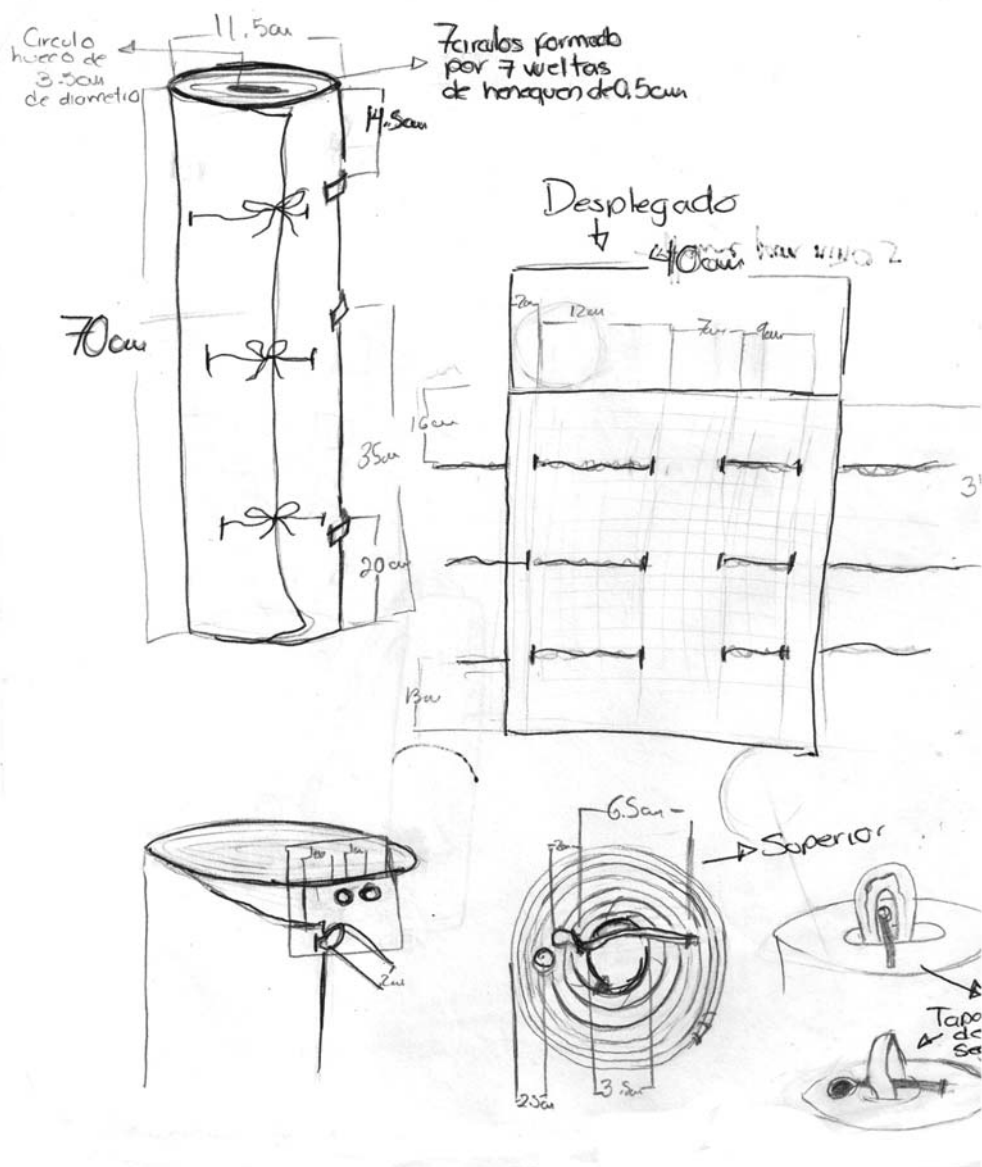 11.5cm
Circulo
hueco de
3.5cm
de diametro
7 circulos formado
por 7 vueltas
de henequen de 0.5cm
14.5cm
70cm
35cm
20cm
Desplegado
40cm
2cm
12cm
7cm
9cm
16cm
13cm
1cm
1cm
2cm
6.5cm
2cm
2.5cm
3.5cm
Superior
Tapa
de